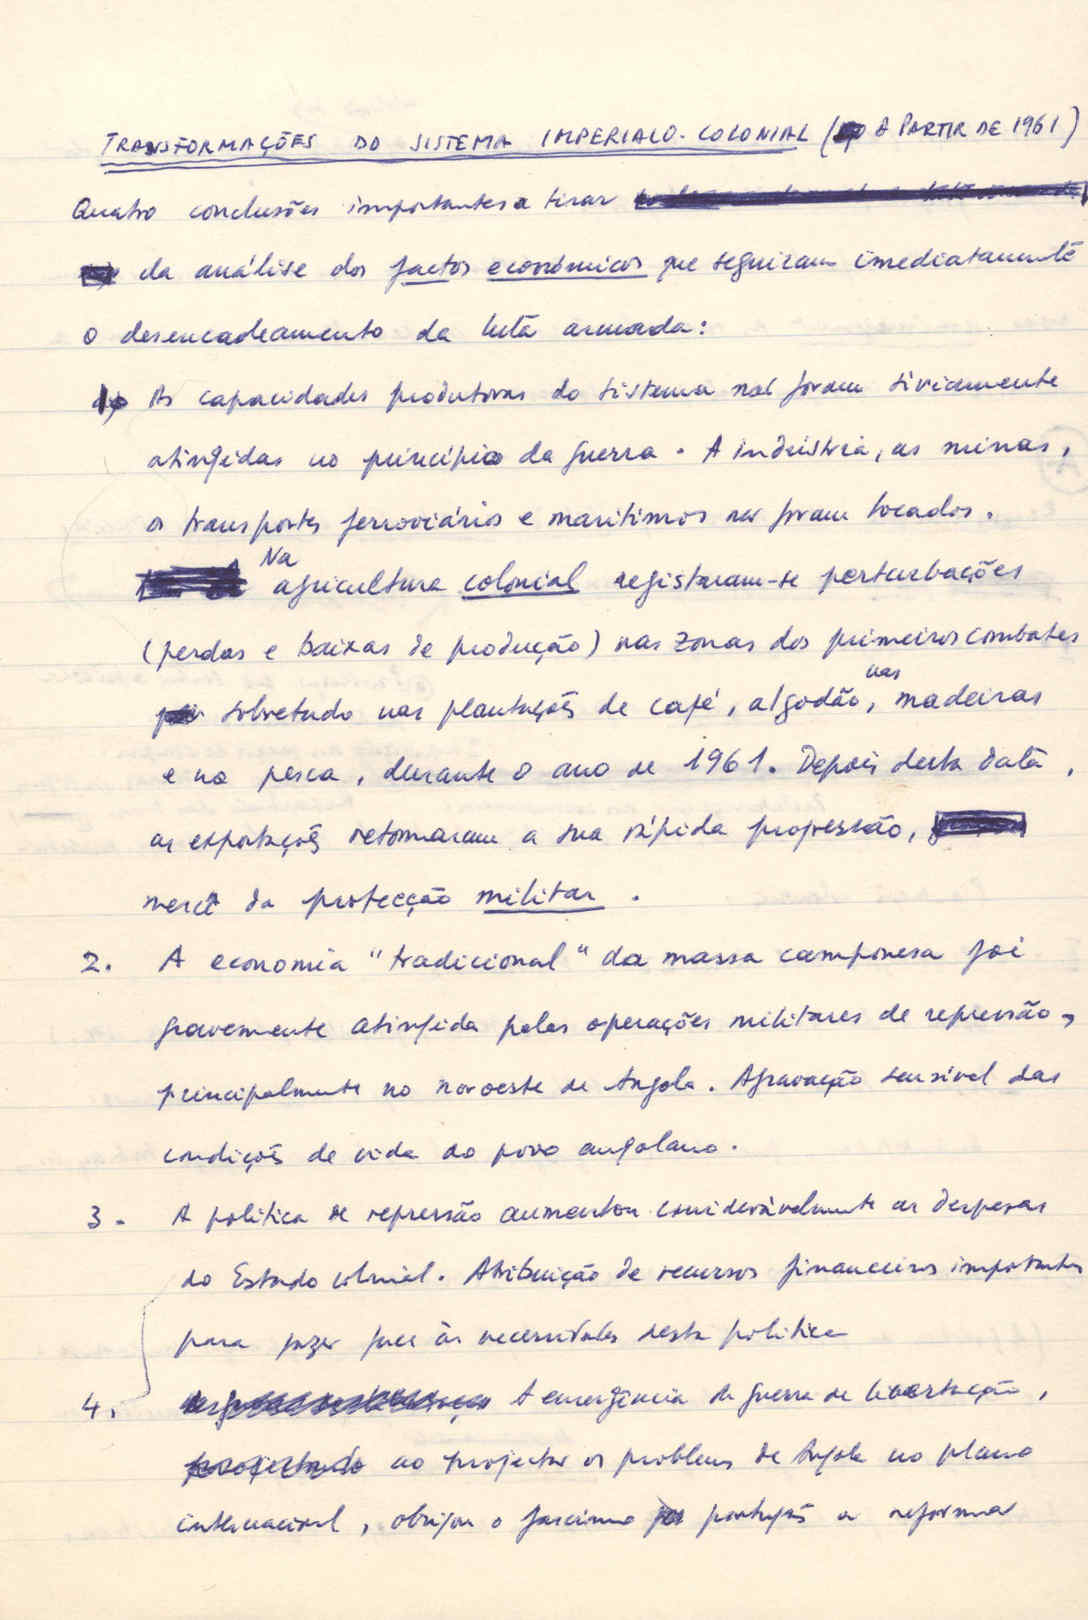 TRANSFORMAÇÕES DO SISTEMA IMPERIALO-COLONIAL ( A PARTIR DE 1961)
Quatro conclusões importantes a tirar
da análise dos factos económicos que seguiram imediatamente
o desencadeamento da luta armada:
1) As capacidades produtoras do sistema não foram sèriamente
atingidas no princípio da guerra. A indústria, as minas,
os transportes ferroviários e marítimos não foram tocados.
Na
agricultura colonial registaram-se perturbações
(perdas e baixas de produção) nas zonas dos primeiros combates
sobretudo nas plantações de café, algodão, nas madeiras
e na pesca, durante o ano de 1961. Depois desta data,
as exportações retomaram a sua rápida progressão,
mercê da protecção militar.
2. A economia "tradicional" da massa camponesa foi
gravemente atingida pelas operações militares de repressão,
principalmente no noroeste de Angola. Agravação sensível das
condições de vida do povo angolano.
3. A política de repressão aumentou consideràvelmente as despesas
do Estado colonial. Atribuição de recursos financeiros importantes
para fazer face às necessidades desta política
4. A emergência da guerra de libertação,
projectando ao projectar os problemas de Angola no plano
internacional, obrigou o fascismo português a reformar